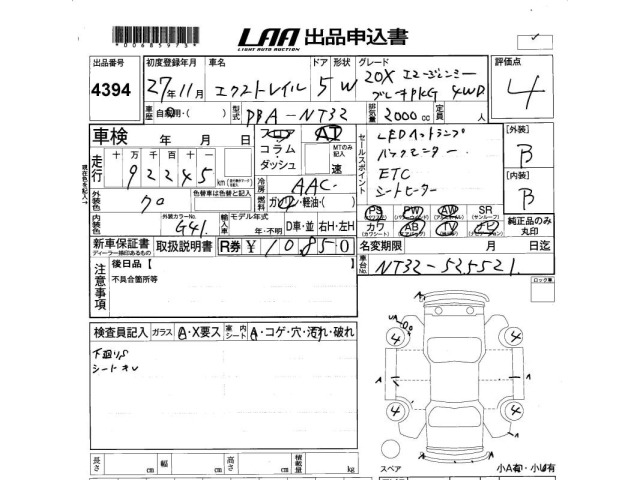 *00685973*
LAA 出品申込書
LIGHT AUTO AUCTION
出品番号 初度登録年月 車名 ドア 形状 グレード 評価点
4394 27年11月 エクストレイル 5 W 20X エマージェンシーブレーキPKG 4WD 4
車歴 自家用・( ) 型式 DBA-NT32 排気量 2000cc 定員 人
車検 年 月 日 フロア コラム・ダッシュ AI MTのみ記入 速
セールスポイント LEDヘッドランプ
バックモニター
ETC
シートヒーター
[外装] B
[内装] B
走行 十万 万 千 百 十 一
92245
現在色を記入
外装色 クロ 色替車は色替と記入
冷房 AAC
燃料 ガソリン・軽油・( )
PS PW AW SR (サンルーフ)
カワ AB TV ナビ
純正品のみ丸印
内装色 外装カラーNo. G41 輸入車 モデル年式 年・不明 D車・並 右H・左H
名変期限 月 日迄
新車保証書 取扱説明書 R券 ¥10850
ディーラー捺印あるもの
車台No. NT32-525521
ロック車
注意事項 後日品【 】
不具合箇所等
検査員記入 ガラス A・X要ス 室内シート A・コゲ・穴・汚れ・破れ
下廻りS
シートオレ
UA
A
4 4
A A
4 4
A
長さ cm 幅 cm 高さ cm 積載量 kg
スペア 小A有・小U有